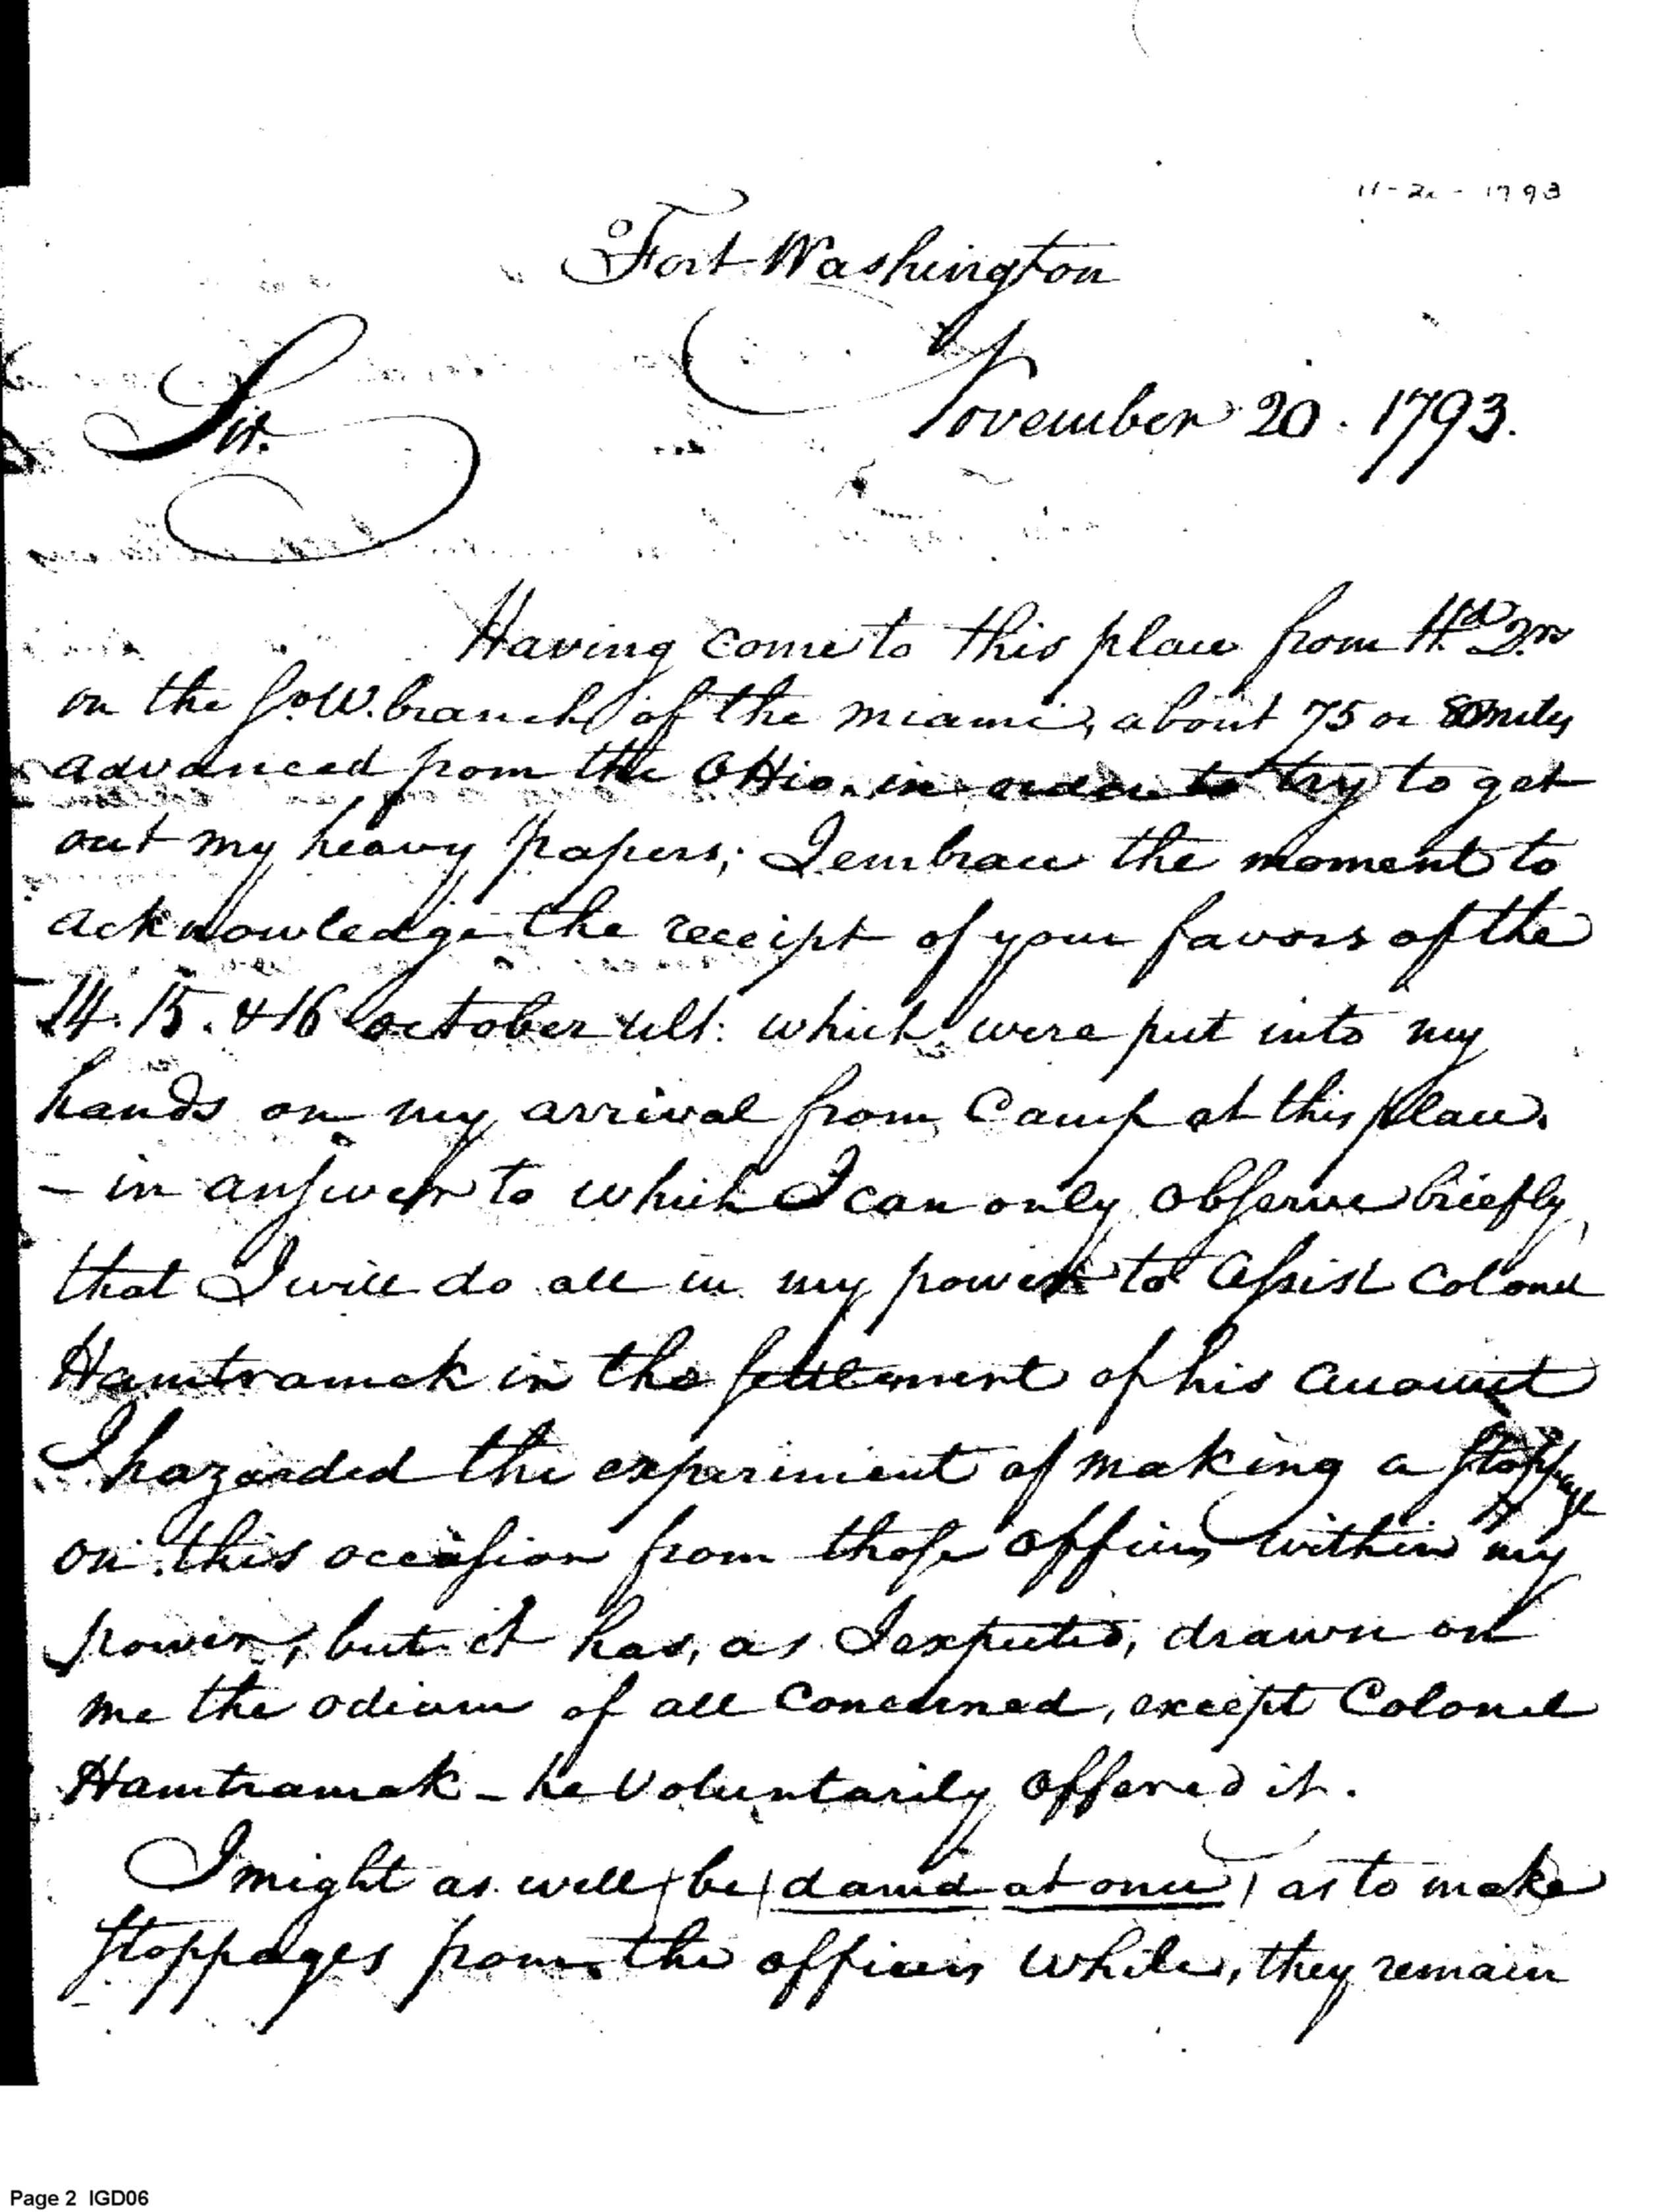 11-20-1793
Fort Washington
November 20. 1793.
Sir.
Having come to this place from Hd Qrs
on the So. W. branch of the miami, about 75 or 80 miles
advanced from the OHio. in order to try to get
out my heavy papers; I embrace the moment to
acknowledge the receipt of your favors of the
14. 15. & 16 october ult: which were put into my
hands on my arrival from Camp at this place.
– in answer to which I can only observe briefly
that I will do all in my power to assist Colonel
Hamtramck in the settlement of his account
I hazarded the experiment of making a stoppage
on this occasion from those officers within my
power, but it has, as I expected, drawn on
me the odium of all concerned, except Colonel
Hamtramak – he voluntarily offered it.
I might as well (be (damd at once) as to make
stoppages from the officers while, they remain
Page 2 IGD06